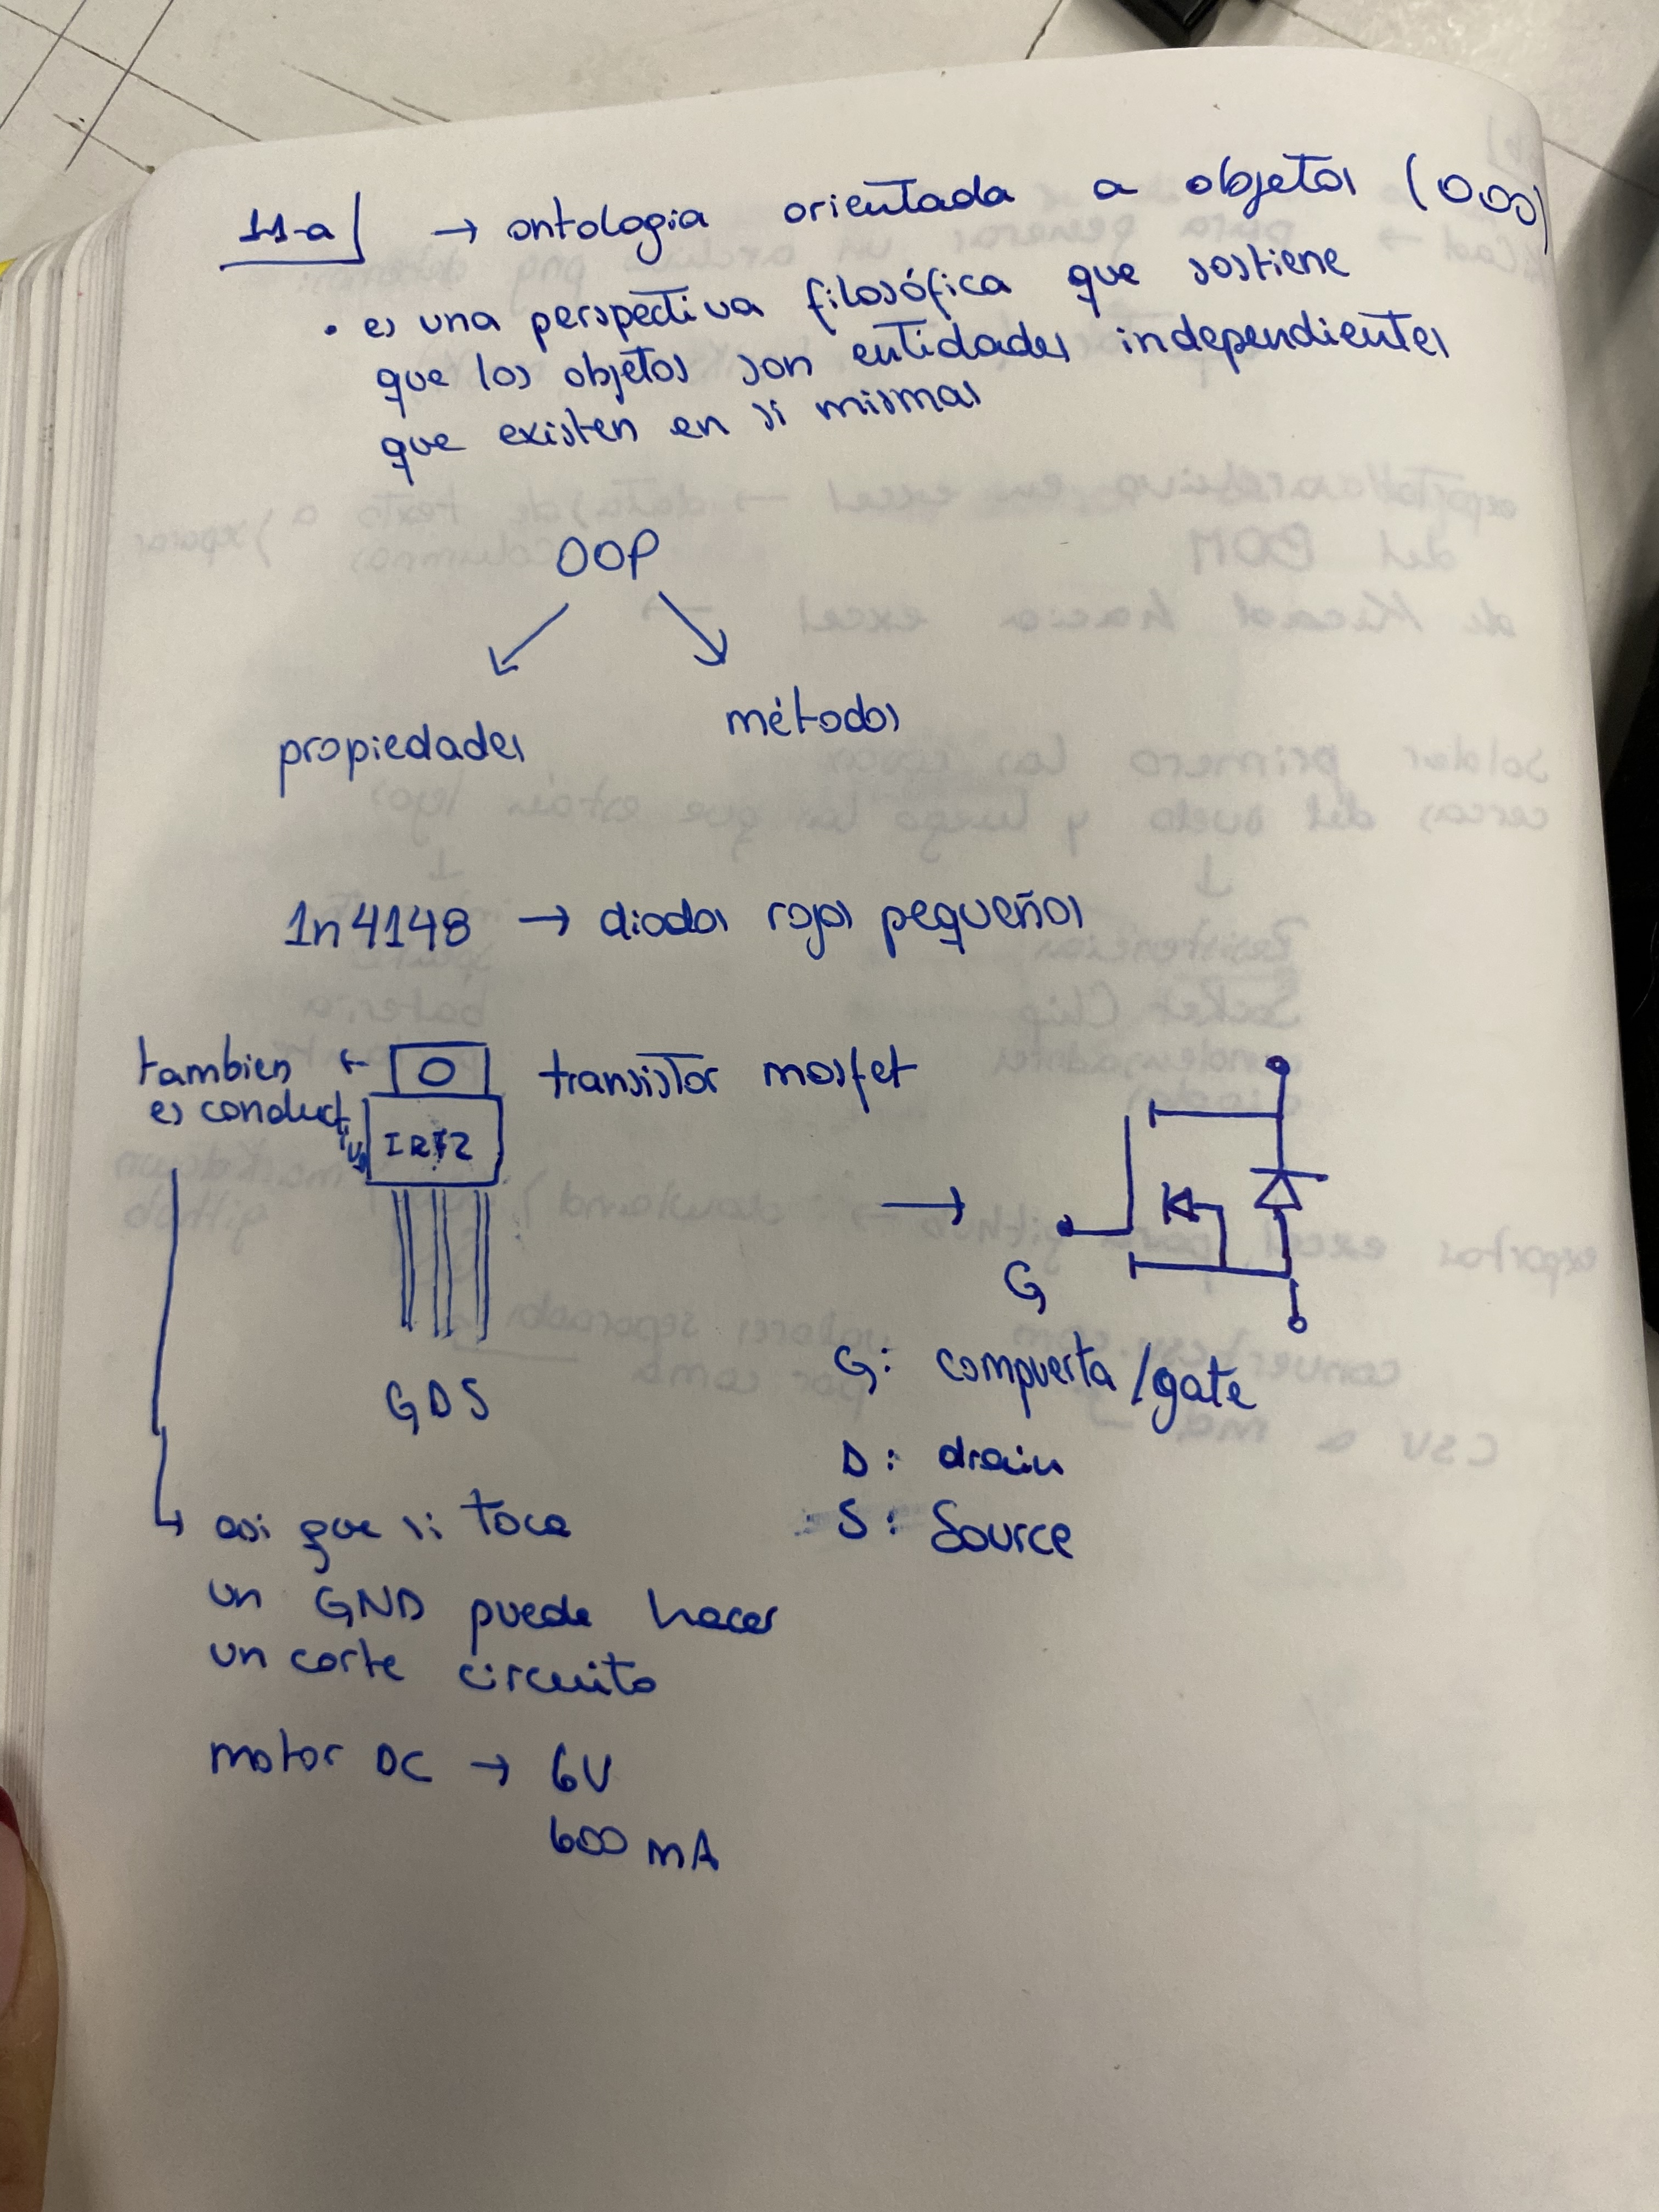 11-a → ontologia orientada a objetos (OOO)
• es una perspectiva filosófica que sostiene
que los objetos son entidades independientes
que existen en si mismas
OOP
propiedades métodos
1n4148 → diodos rojos pequeños
tambien ← transistor mosfet
es conductivo
G
GDS
G: compuerta/gate
D: drain
S: Source
→ asi que si toca
un GND puede hacer
un corte circuito
motor DC → 6V
600 mA